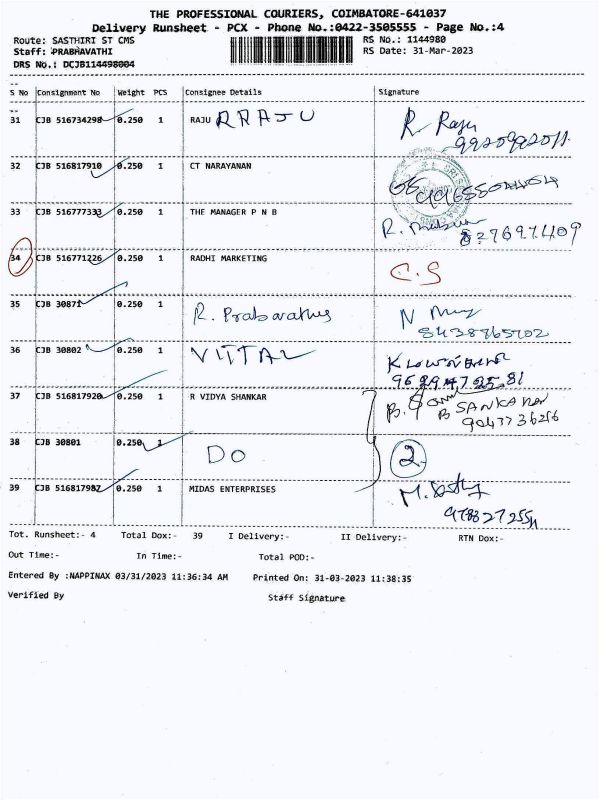 THE PROFESSIONAL COURIERS, COIMBATORE-641037
Delivery Runsheet - PCX - Phone No.:0422-3505555 - Page No.:4
Route: SASTHIRI ST CMS RS No.: 1144980
Staff: PRABHAVATHI RS Date: 31-Mar-2023
DRS No.: DCJB114498004
S No Consignment No Weight PCS Consignee Details Signature
31 CJB 516734298 0.250 1 RAJU R RAJU R. Raju
32 CJB 516817910 0.250 1 CT NARAYANAN
33 CJB 516777333 0.250 1 THE MANAGER P N B
34 CJB 516771226 0.250 1 RADHI MARKETING C.S
35 CJB 30871 0.250 1 R. Prabavathy
36 CJB 30802 0.250 1 VITTAL
37 CJB 516817920 0.250 1 R VIDYA SHANKAR
B SANKARAN
9047736256
38 CJB 30801 0.250 1 DO 2
39 CJB 516817987 0.250 1 MIDAS ENTERPRISES
Tot. Runsheet:- 4 Total Dox:- 39 I Delivery:- II Delivery:- RTN Dox:-
Out Time:- In Time:- Total POD:-
Entered By :NAPPINAX 03/31/2023 11:36:34 AM Printed On: 31-03-2023 11:38:35
Verified By Staff Signature